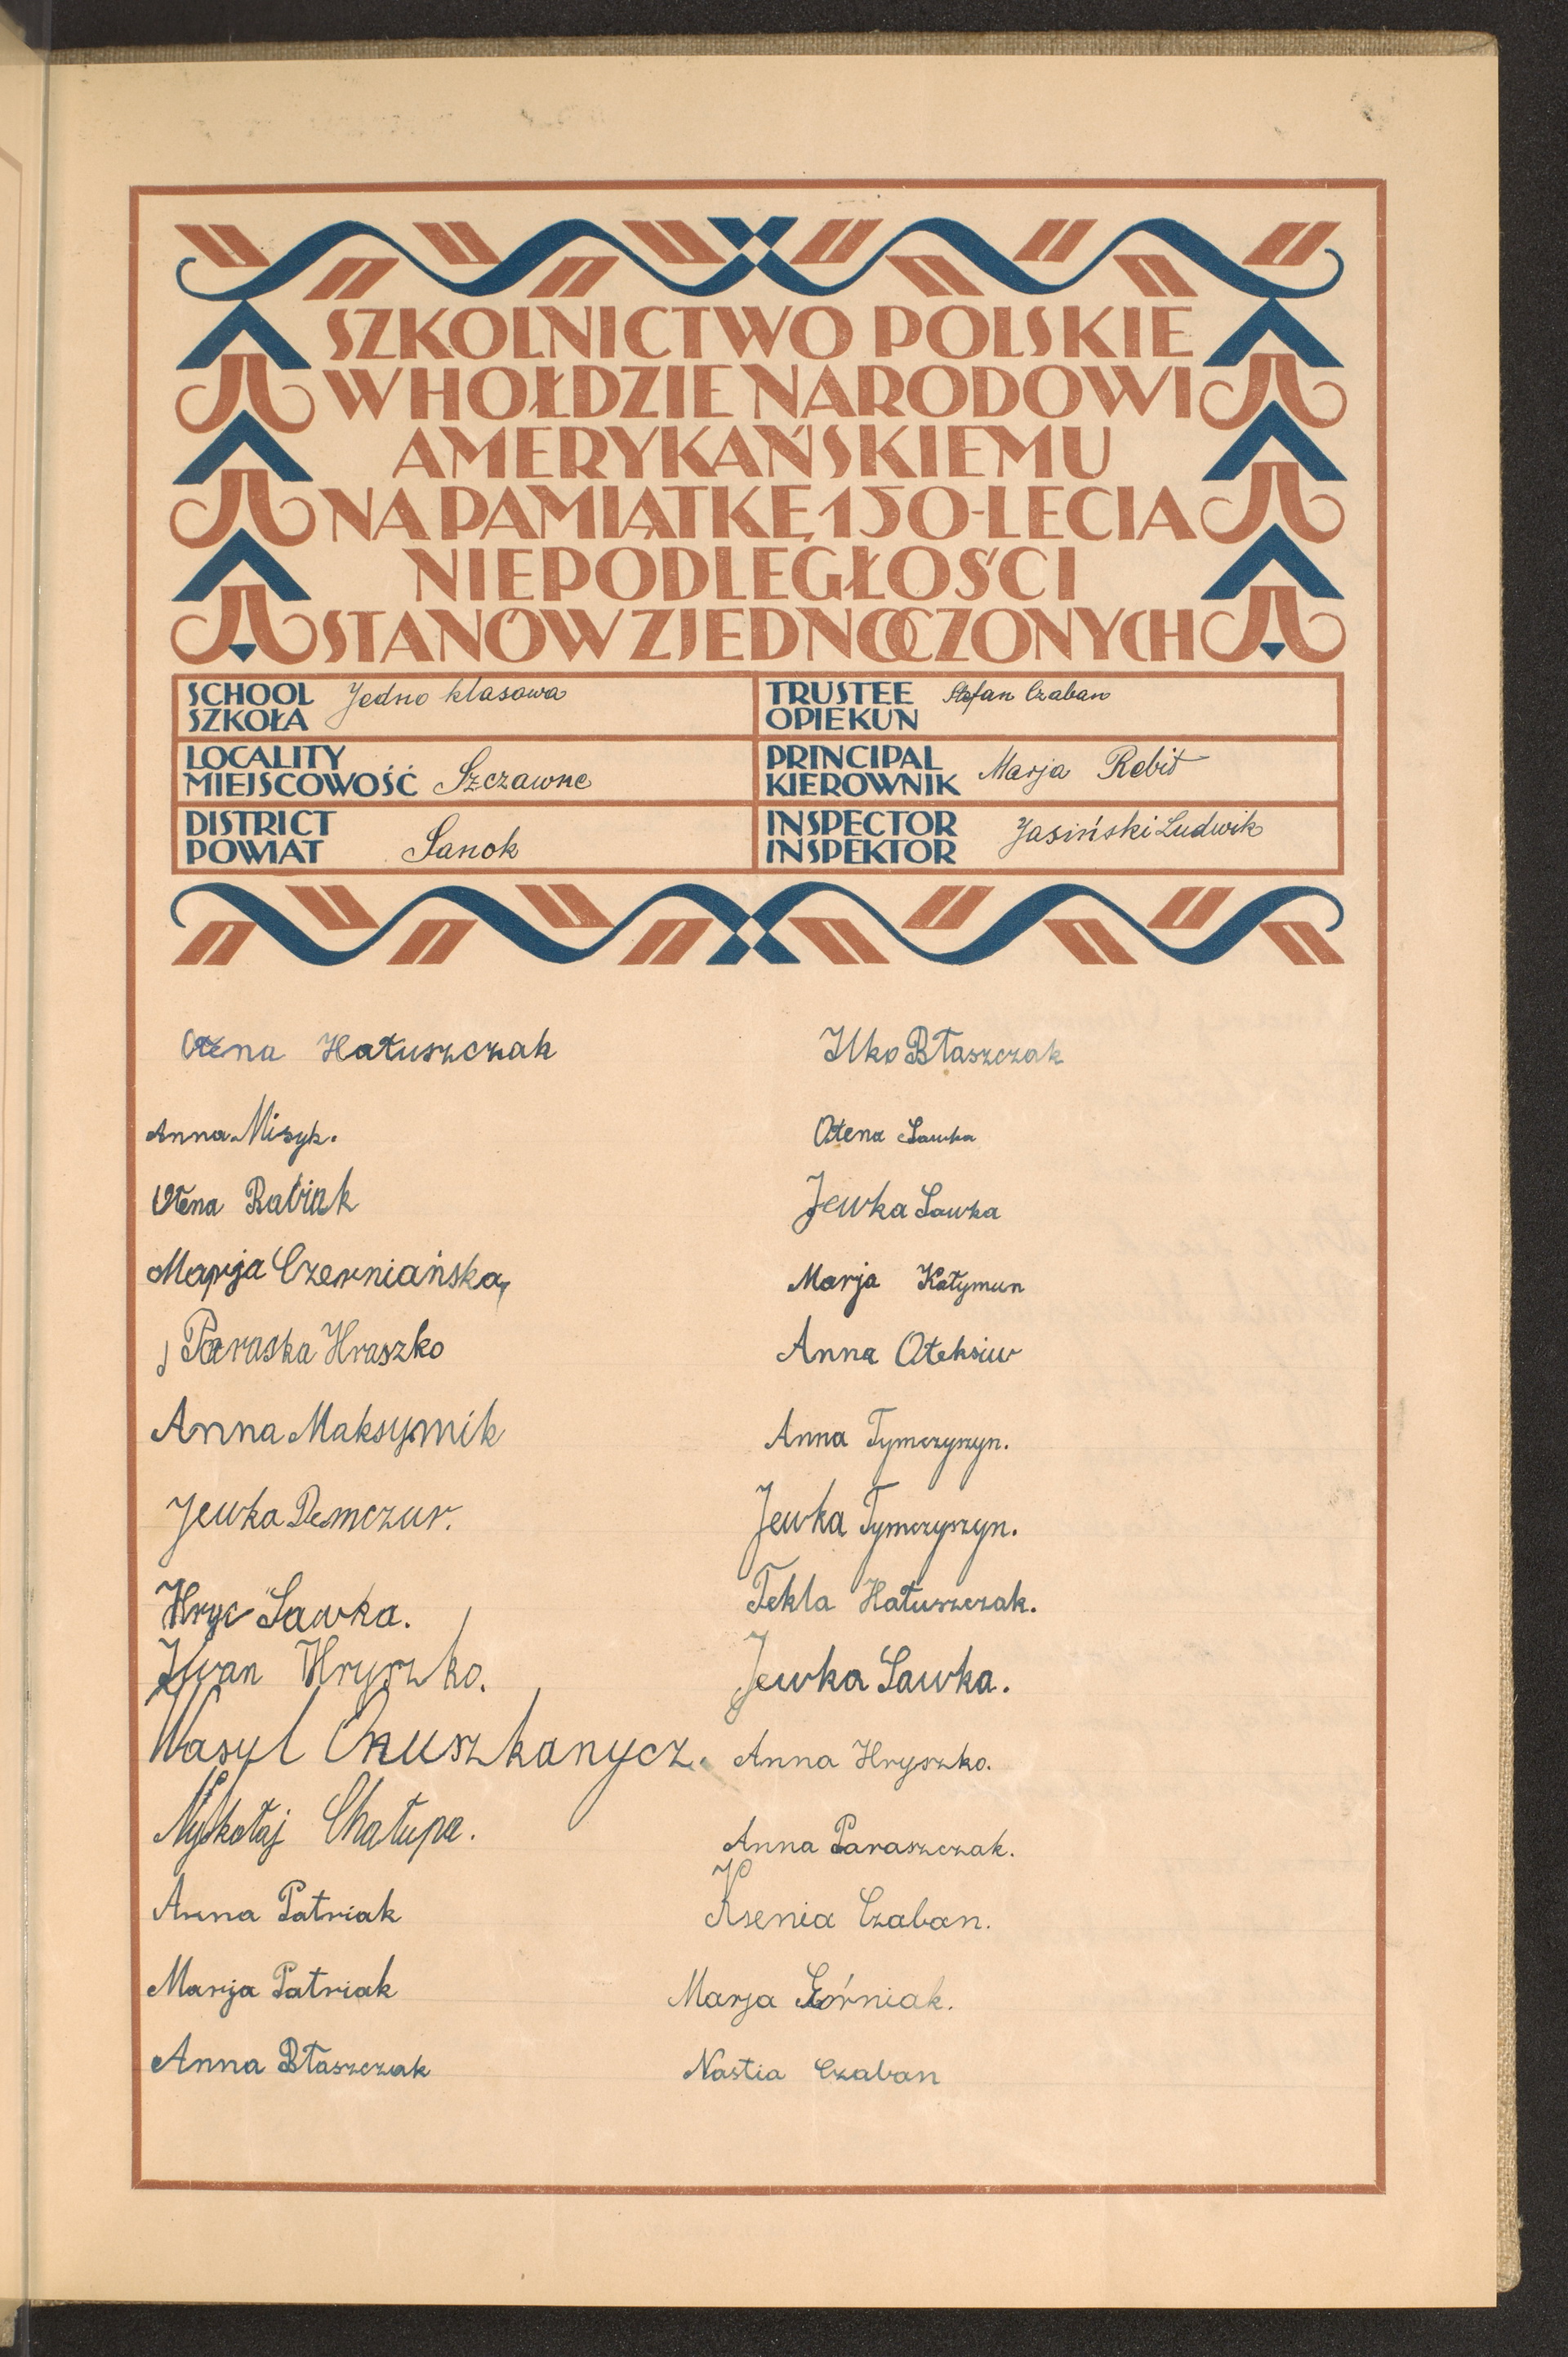 SZKOLNICTWO POLSKIE
W HOŁDZIE NARODOWI
AMERYKAŃSKIEMU
NA PAMIĄTKĘ 150-LECIA
NIEPODLEGŁOŚCI
STANÓW ZJEDNOCZONYCH
SCHOOL
SZKOŁA Jedno klasowa
TRUSTEE
OPIEKUN Stefan Czaban
LOCALITY
MIEJSCOWOŚĆ Szczawne
PRINCIPAL
KIEROWNIK Marja Robit
DISTRICT
POWIAT Sanok
INSPECTOR
INSPEKTOR Jasiński Ludwik
Ołena Hałuszczak
Anna Misyk.
Ołena Rabiak
Marja Czerniańska
Paraska Hraszko
Anna Maksymik
Jewka Demczur.
Hryc Sawka.
Iwan Hryszko.
Wasyl Onuszkanycz.
Mykołaj Chałupa.
Anna Patriak
Marja Patriak
Anna Błaszczak
Ilko Błaszczak
Ołena Sawka
Jewka Sawka
Marja Kałymun
Anna Ołeksiw
Anna Tymczyszyn.
Jewka Tymczyszyn.
Tekla Hałuszczak.
Jewka Sawka.
Anna Hryszko.
Anna Paraszczak.
Ksenia Czaban.
Marja Górniak.
Nastia Czaban